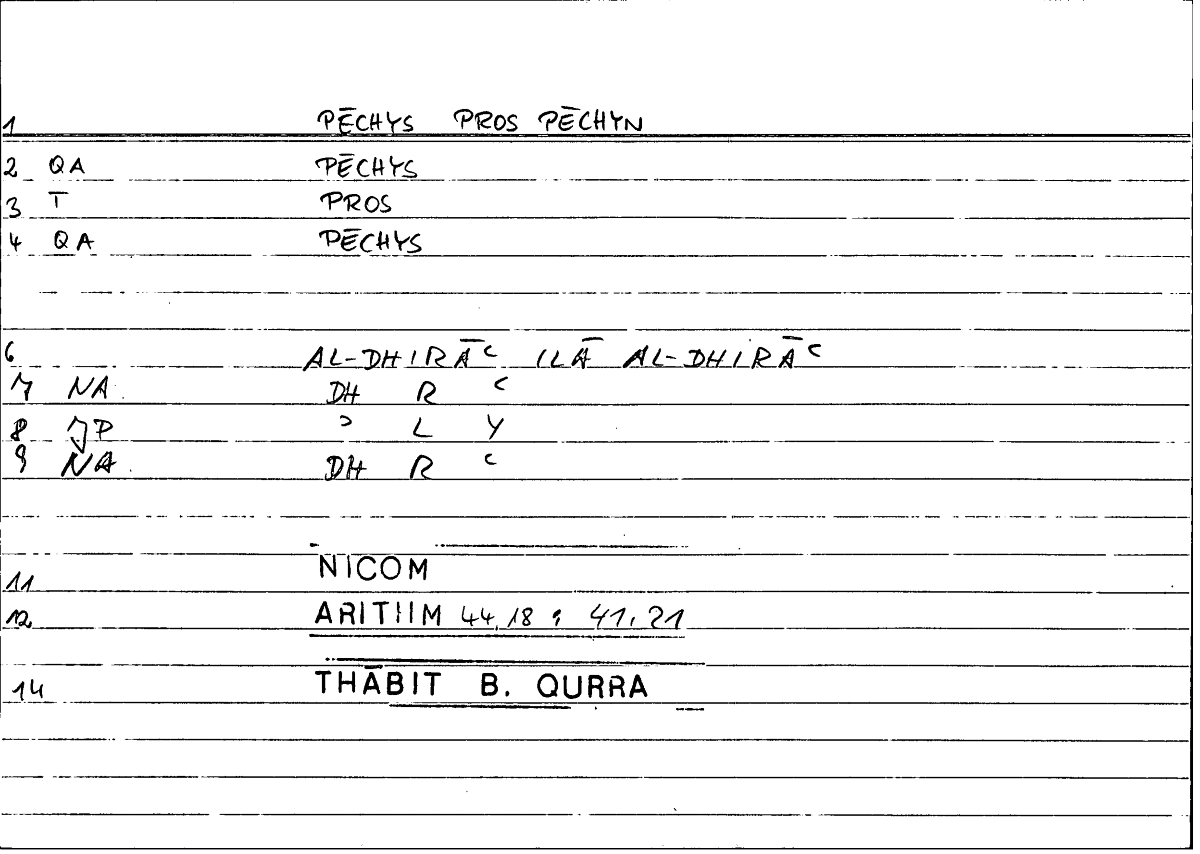 1 PĒCHYS PROS PĒCHYN
2 QA PĒCHYS
3 T PROS
4 QA PĒCHYS
6 AL-DHIRĀʿ ILĀ AL-DHIRĀʿ
7 NA DH R ʿ
8 JP ʾ L Y
9 NA DH R ʿ
NICOM
11
12 ARITHM 44,18 ; 41,21
14 THĀBIT B. QURRA